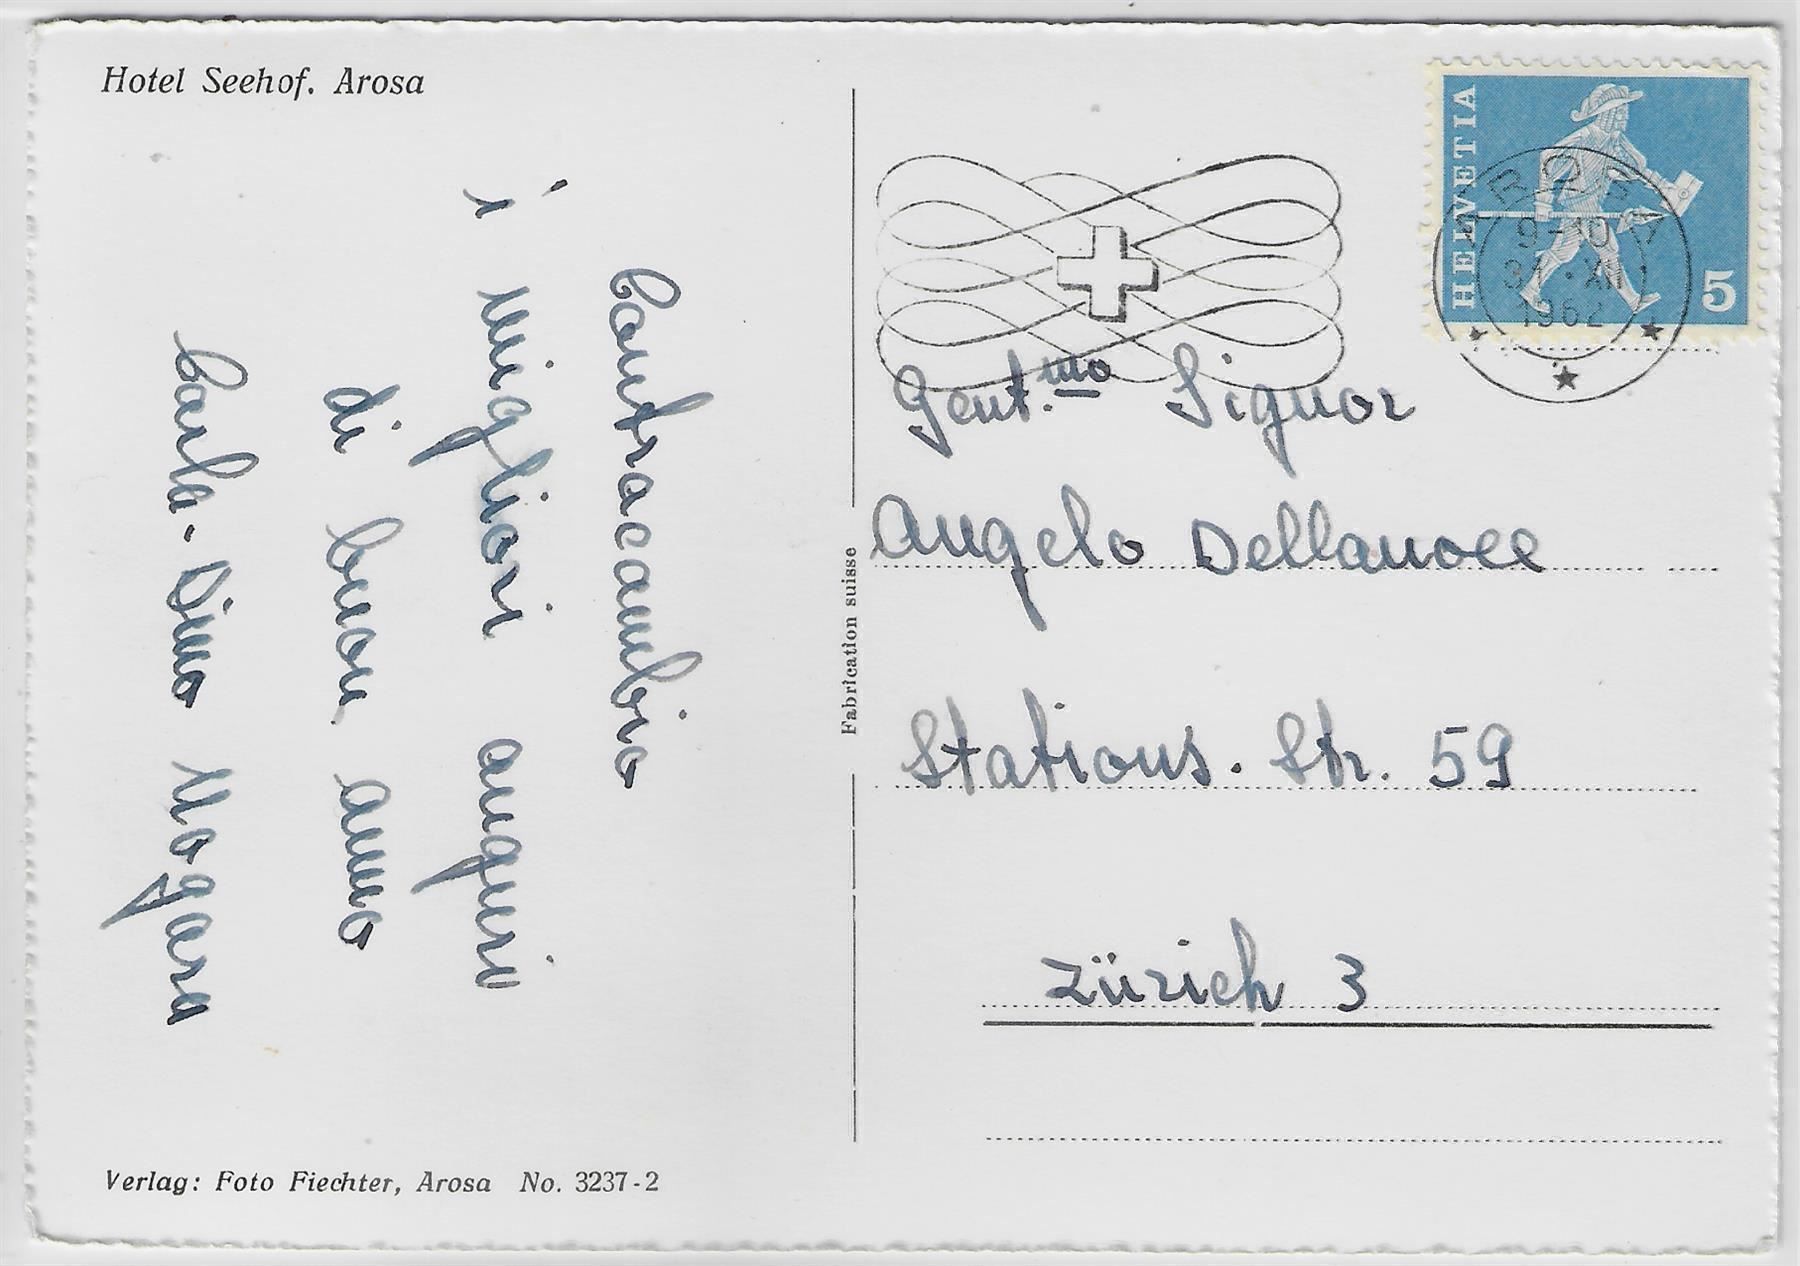 Hotel Seehof. Arosa
Contraccambio
i migliori auguri
di buon anno
Carla - Dino Nogara
Verlag: Foto Fiechter, Arosa No. 3237-2
Fabrication suisse
HELVETIA
5
AROSA
9-10
31.XII
1962
Gent.mo Signor
Angelo Dellanoce
Stations. Str. 59
Zürich 3